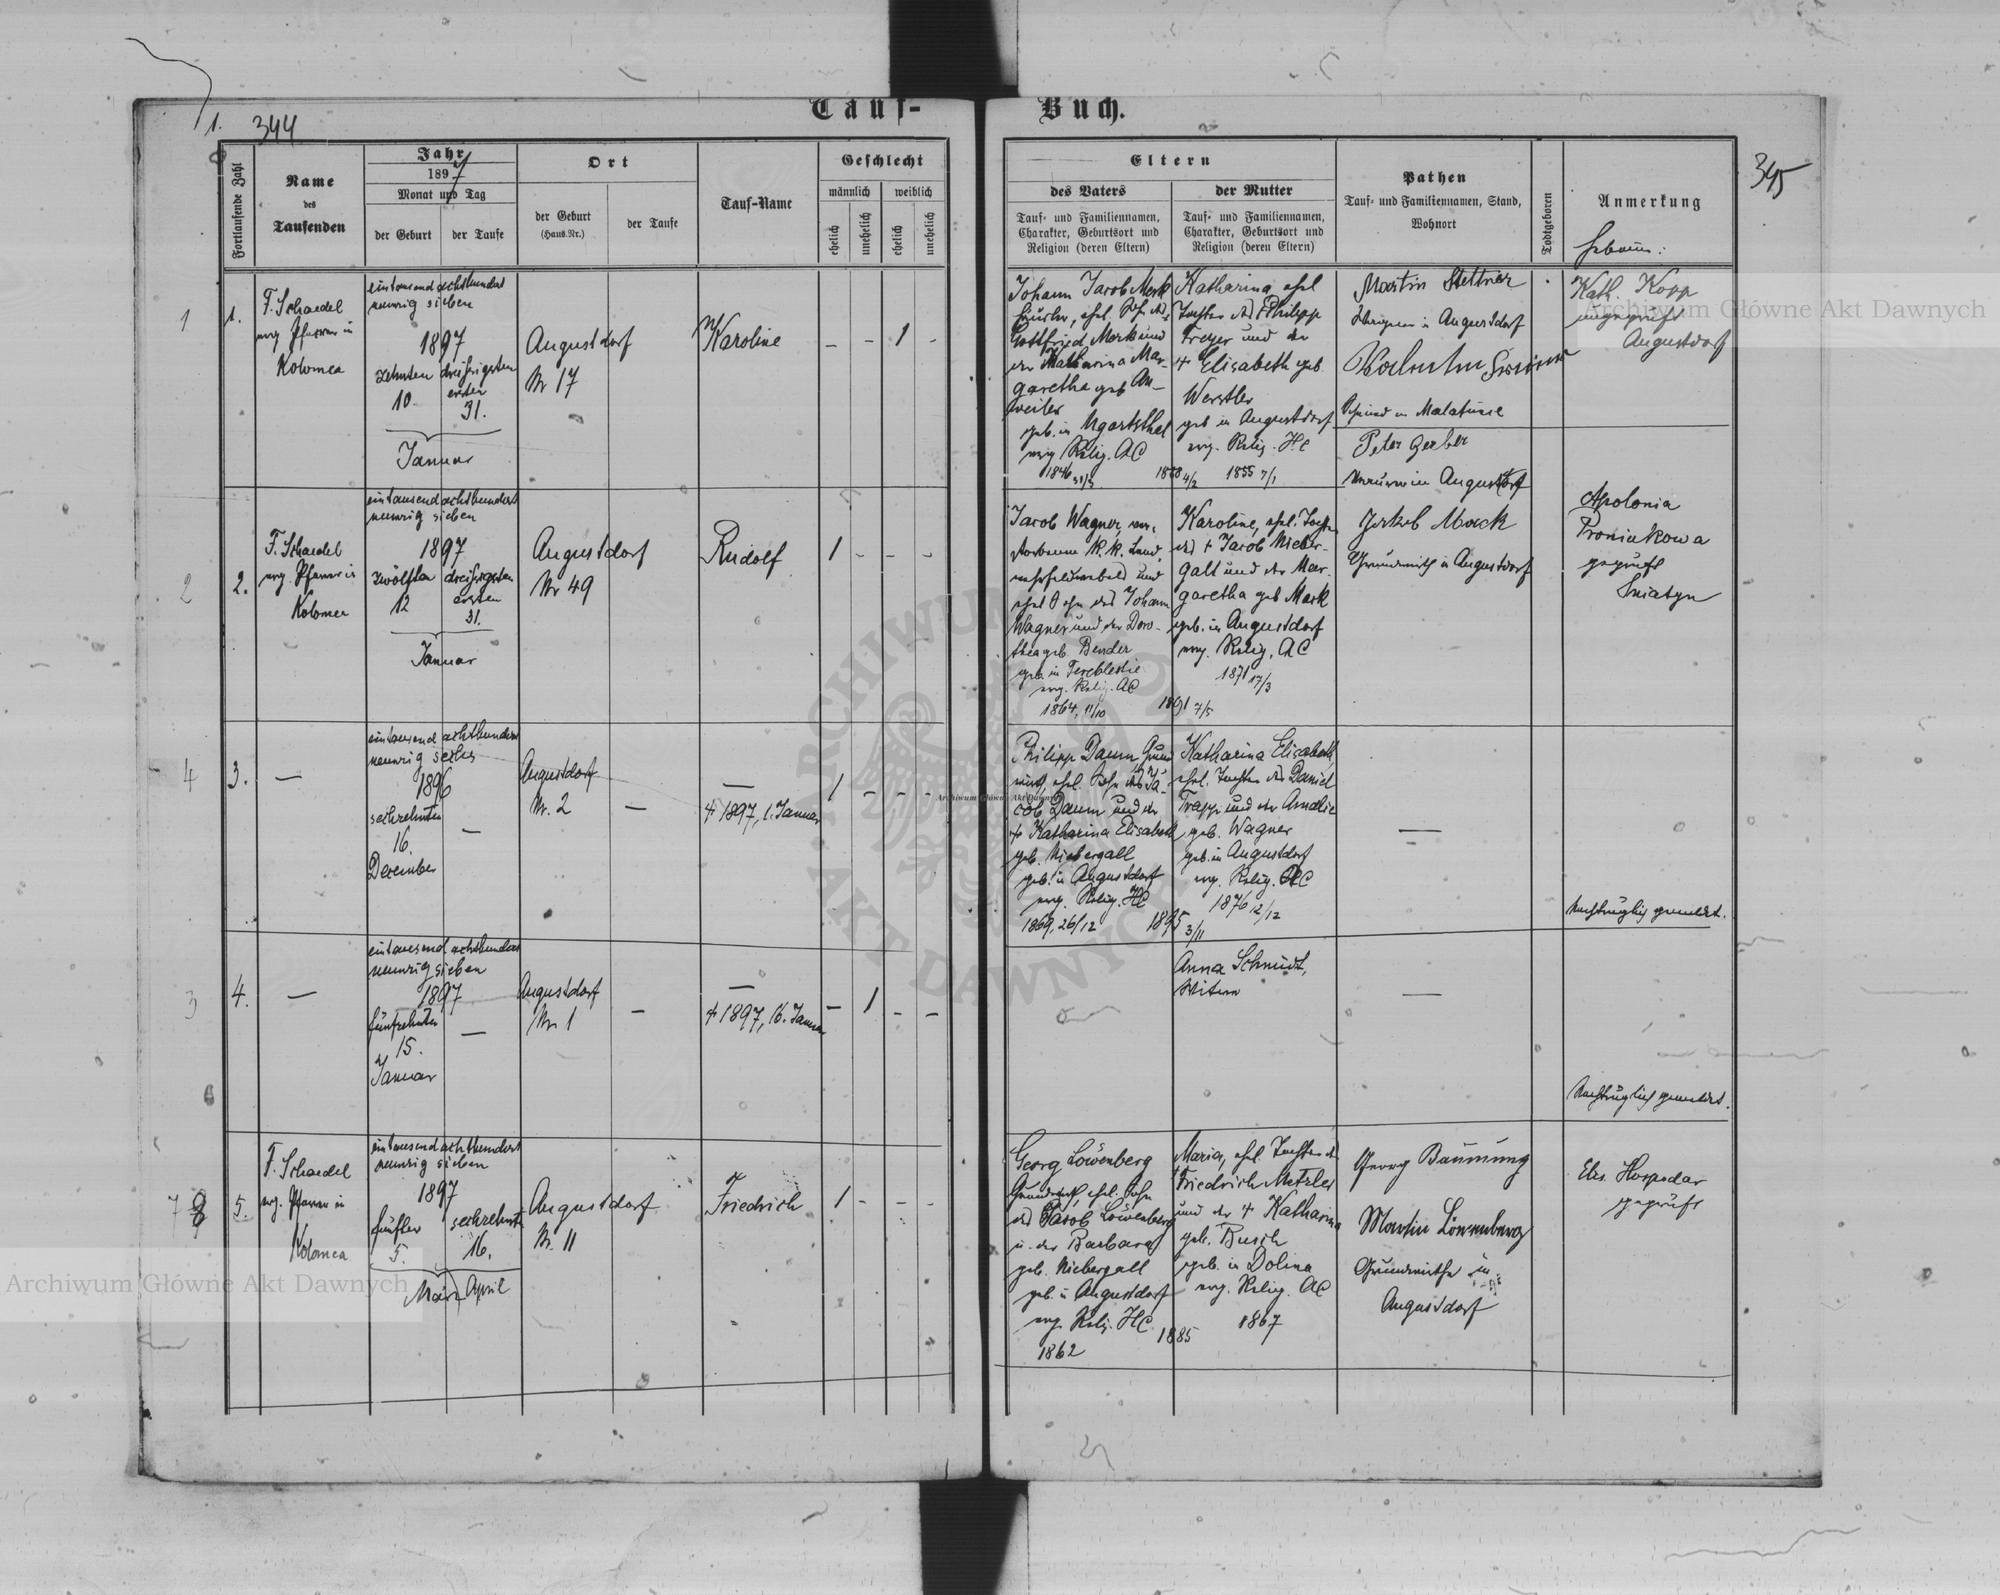 Tauf-
Buch.
1.
344
345
Fortlaufende Zahl
Name
des
Taufenden
Jahr
1897
Monat und Tag
der Geburt
der Taufe
Ort
der Geburt
(Haus.Nr.)
der Taufe
Tauf-Name
Geschlecht
männlich
weiblich
ehelich
unehelich
ehelich
unehelich
Eltern
des Vaters
Tauf- und Familiennamen,
Charakter, Geburtsort und
Religion (deren Eltern)
der Mutter
Tauf- und Familiennamen,
Charakter, Geburtsort und
Religion (deren Eltern)
Pathen
Tauf- und Familiennamen, Stand,
Wohnort
Todtgeboren
Anmerkung
1
1.
F. Schaedel
evg. Pfarrer in
Kolomea
eintausend achthundert
neunzig sieben
1897
zehnten dreissigsten
ersten
10. 31.
Januar
Augustdorf
Nr 17
Karoline
– – 1 –
Johann Jacob Merk
Gottfried Merk und
der Katharina Mar-
garetha geb. An-
weiler
geb. in Ugartsthal
evg. Relig. AC
1846 31/3
1878 4/2
Katharina, ehel.
Tochter des Philipp
Freyer und der
+ Elisabeth geb.
Werstler
geb in Augustdorf
evg. Relig. HC
1855 7/1
Martin Stettner
in Augustdorf
Peter Gerber
in Augustdorf
Kath. Kopp
ungeprüft
Augustdorf
2
2.
F. Schaedel
evg. Pfarrer in
Kolomea
eintausend achthundert
neunzig sieben
1897
zwölften dreissigsten
ersten
12 31.
Januar
Augustdorf
Nr 49
Rudolf
1 – – –
Jacob Wagner, ver-
storbener K. K. Land-
wehrfeldwebel und
ehel Sohn des Johann
Wagner und der Doro-
thea geb. Bender
geb. in Tereblestie
evg. Relig. AC
1864, 11/10
1891 7/5
Karoline, ehel. Tochter
des + Jacob Nieber-
gall und der Mar-
garetha geb Mark
geb. in Augustdorf
evg. Relig. AC
1871 17/3
Jakob Mack
Grundwirth in Augustdorf
Apolonia
Proniukowa
geprüft
Sniatyn
4
3.
—
eintausend achthundert
neunzig sechs
1896
sechzehnten
16.
December
—
Augustdorf
Nr. 2
—
—
+ 1897, 1. Januar
1 – – –
Philipp Daum, Grund-
wirt, ehel. Sohn des Ja-
cob Daum und der
+ Katharina Elisabeth
geb. Niebergall
geb. in Augustdorf
evg. Relig. HC
1869, 26/12
1895 3/11
Katharina Elisabeth,
ehel. Tochter des Daniel
Trapp und der Amalie
geb. Wagner
geb. in Augustdorf
evg. Relig. AC
1876 12/12
—
Nachträglich gemeldet.
3
4.
—
eintausend achthundert
neunzig sieben
1897
fünfzehnten
15.
Januar
—
Augustdorf
Nr. 1
—
—
+ 1897, 16. Januar
– 1 – –
Anna Schmidt,
Witwe
—
Nachträglich gemeldet.
7
5.
F. Schaedel
evg. Pfarrer in
Kolomea
eintausend achthundert
neunzig sieben
1897
fünfter sechzehnte
5. 16.
März April
Augustdorf
Nr. 11
Friedrich
1 – – –
Georg Löwenberg
Grundwirth, ehel. Sohn
des Jacob Löwenberg
u. der Barbara
geb. Niebergall
geb. in Augustdorf
evg. Relig. HC
1862
1885
Maria, ehel. Tochter des
Friedrich Metzler
und der + Katharina
geb. Busch
geb. in Dolina
evg. Relig. AC
1867
Georg Baumung
Martin Löwenberg
Grundwirthe in
Augustdorf
Elis. Hospodar
geprüft
Archiwum Główne Akt Dawnych
Archiwum Główne Akt Dawnych
Archiwum Główne Akt Dawnych
ARCHIWUM
AKT DAWNYCH